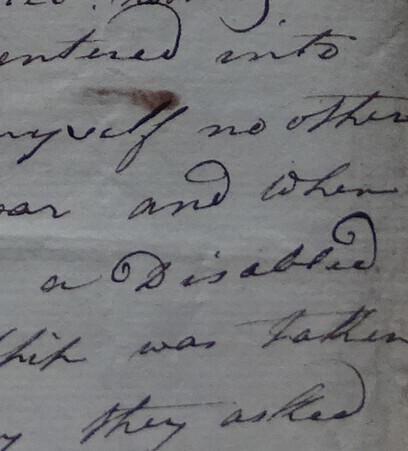 entered into
myself no other
and when
a Disabled
ship was taken
they asked